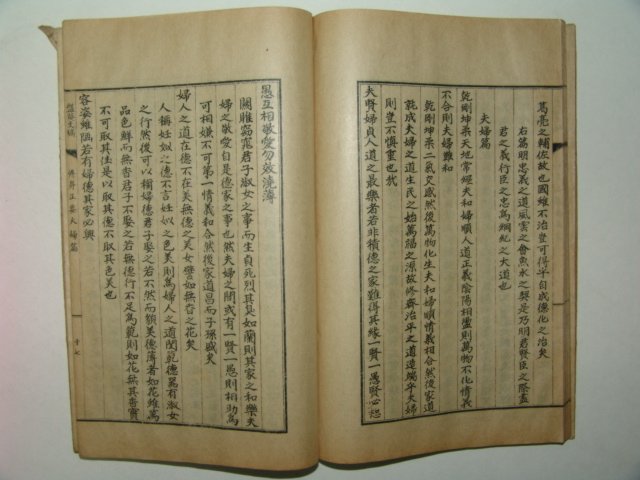 葛亮之輔佐故也國雖不治豈可得乎自成德化之治矣
右篇明忠義之道風雲之會魚水之契是乃明君賢臣之際盡
君之義行臣之忠爲綱紀之大道也
夫婦篇
乾剛坤柔天地常經夫和婦順人道正義陰陽相盪則萬物不化情義
不合則夫婦難和
乾剛坤柔二氣交感然後萬物化生夫和婦順情義相合然後家道
乾成夫婦之道生民之始萬福之源故修齊治平之道造端乎夫婦
則豈不愼重也哉
夫賢婦貞人道之最樂者若非積德之家難得其緣一賢一愚賢必恕
愚互相敬愛勿效澆薄
關雎窈窕君子淑女之事而生貞死烈其臭如蘭則其家之和樂夫
婦之敬愛自是德家之事也然夫婦之間或有一賢一愚則相助爲
可相嫌不可第一情義和合然後家道昌而子孫盛矣
婦人之道在德不在美無德之美女譬如無香之花矣
人稱妊姒之德不言妊姒之色美則爲婦人之道閨範德篤有淑女
之行然後可以輔婦德君子娶之若不然而貌美德薄者如花雖萬
品色鮮而無香君子不娶之若無德行不足爲範則如花無其香實
不取其佳是以可取其德不取其色美也
容姿雖陋若有婦德其家必興
文稿
倫常正要夫婦篇
十七